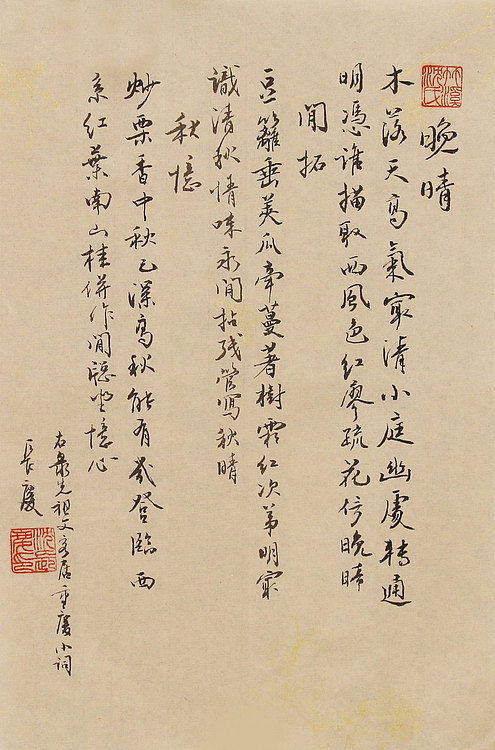 晚晴
木落天高氣寂清小庭幽處轉通
明憑誰描取西風色紅蓼疏花傍晚晴
閒拈
豆籬垂莢瓜牽蔓著樹霜紅次第明寂
識清秋情味永閒拈殘管寫秋晴
秋憶
炒栗香中秋已深高秋能有幾登臨西
泉紅葉南山桂併作閒窗坐憶心
右錄先祖父客居重慶小詞
長慶